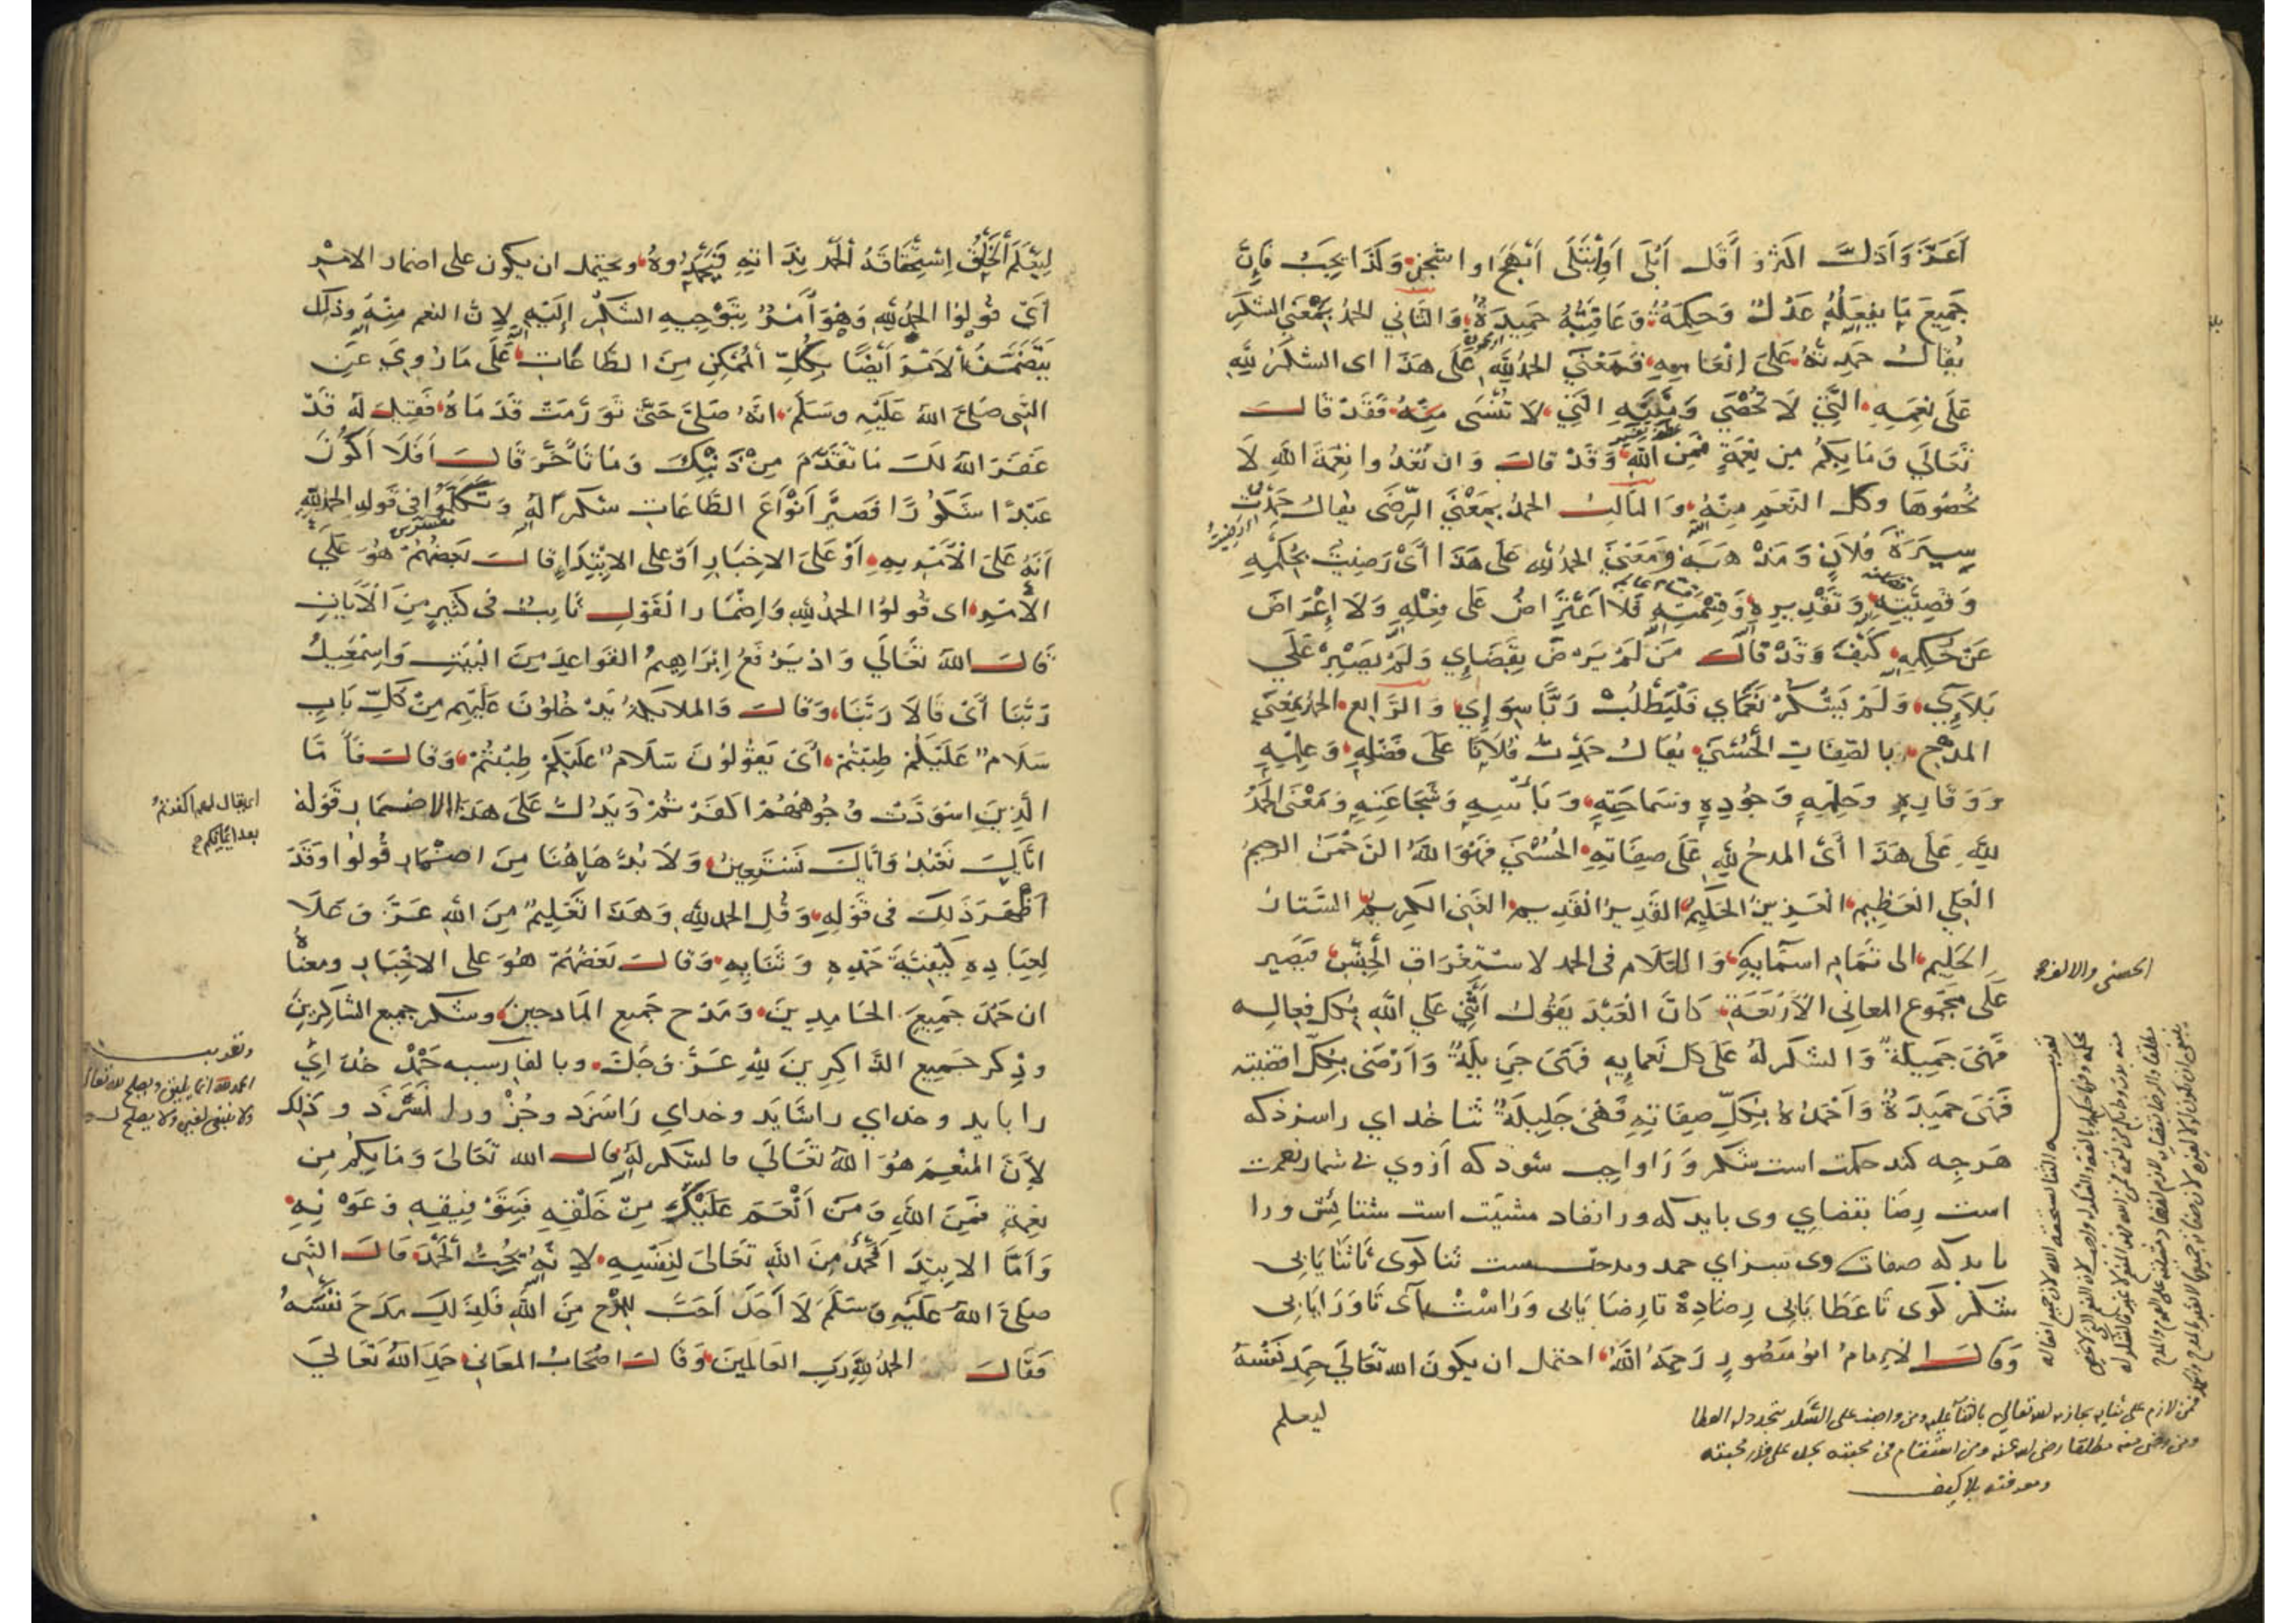 أَعَزَّ وَأَذَلَّ أكثرَ وَأَقَلَّ أَبْلَى أَوِ ابْتَلَى أَبْهَجَ او اشجن وَلَذَا يجب فَإِنَّ
جَمِيعَ مَا يفعَلُهُ عَدْلٌ وَحِكْمَةٌ وَعَاقِبَتُهُ حَمِيدَةٌ وَالثَّانِي الحمدُ بمَعْنَى الشكرِ
يُقَالُ حَمِدتُهُ عَلَى اِنْعَامِهِ فَمَعْنَى الحمدُ لِلّهِ عَلَى هَذَا اى الشكرُ لِلّهِ
عَلَى نِعَمِهِ الَّتِي لَا تُحْصَي وَمِنَنِهِ الَّتِي لَا تُنْسَى فَقَدْ قَالَ
تَعَالَي وَمَا بِكُمْ مِن نِعْمَةٍ فَمِنَ اللهِ وَقَدْ قَالَ وَان تَعُدُّوا نِعْمَةَ اللهِ لَا
تُحْصُوهَا وكل النِعَمِ مِنْهُ وَالثالث الحمدُ بِمَعْنَى الرِّضَى يُقَالُ حَمِدْتُ
سِيرَةَ فُلَانٍ وَمَذْهَبَهُ وَمَعْنَى الحمدُ لِلّه عَلَى هَذَا أَىْ رَضِيتُ بِحُكْمِهِ
وَقَضِيَّتِهِ وَتَقْدِيرِهِ وَقِسْمَتِهِ فَلَا اعْتِرَاضُ عَلَى فِعْلِهِ وَلَا إِعْرَاضَ
عَنْ حُكْمِهِ كَيْفَ وَقَدْ قَالَ مَنْ لَمْ يَرْضَ بِقَضَايِ وَلَمْ يَصْبِرْ عَلَي
بَلَايِ وَلَمْ يَشْكُرْ نَعْمَاي فَلْيَطْلُبْ رَبًّا سِوَايِ وَالرَّابِع الحمدُ بمَعْنَي
المدح بالصِّفَاتِ الْحُسْنَى يُقَالُ حَمِدْتُ فُلَانًا عَلَى فَضْلِهِ وَعِلْمِهِ
وَوَقَارِهِ وَحِلْمِهِ وَجُودِهِ وَسَمَاحَتِهِ وَبَأْسِهِ وَشَجَاعَتِهِ وَمَعْنَى الْحَمْدُ
لِلّهِ عَلَى هَذَا أَىْ المدحُ لِلّهِ عَلَى صِفَاتِهِ الْحُسْنَى فَهُوَ اللهُ الرَّحْمَنُ الرحِيمُ
الْعَلِي الْعَظِيمُ الْعَزِيزُ الْحَكِيمُ الْقَدِيرُ الْقَدِيمُ الْغَنِي الكَرِيمُ السَّتَارُ
الحَلِيم الى تَمَامِ اسمَايِهِ وَاللَّام فى الحمد لاسْتِغْرَاقِ الْجِنْسِ فيَصِير
عَلَى مَجْمُوعِ المعانِى الْأَرْبَعَةِ كَانَ الْعَبْدَ يَقُولُ أُثْنِي عَلَي اللهِ بِكل فِعاله
فَهْىَ جَمِيلَةٌ وَالشكر لَهُ عَلَى كل نَعمايِهِ فَهَىَ جَزِيلَةٌ وَاَرْضَى بِكلِّ اقضيته
فَهَىَ حَمِيدَةٌ وَأَحْمَدُهُ بِكلِّ صِفَاتِهِ فَهْىَ جَلِيلَةٌ ثنا خُداى راسزذكه
هَرچِه كند حكمت است شكر وَرَا واجب شوذ كه اَز وي بى شمار نعمت
است رِضَا بقضاىِ وى بايد كه ورا نفاد مشيت است ستايش ورا
بايد كه صفات وى سزاي حمد ومدحت ست ثنا كوى تا ثنا يَابى
شكر كوى تا عَطا يَابى رِضا دِهْ تا رِضا يَابى وَرَاسْت آى تا وَرَا يابى
وَقَالَ الاِمامُ ابُو مَنصُورٍ رَحِمَهُ اللهُ احتمل ان يكونَ الله تَعَالَي حَمِدَ نَفْسَهُ
الحسنى والالف
من لازم على ثنايه يجازيه الله تعالى بالثنا عليه ومن واظب على الشكر يتجدد له العطا
ومن رضى عنه مطلقا رضى الله عنه ومن استقام فى محبته
ومعرفته بلا كيف
ليعلم
لِيَعْلَمَ الْخَلْقُ اِسْتِحْقَاقَهُ الْحَمْدَ بِذَاتِهِ فَيَحْمَدُوهُ ويحتمل ان يكون على اضمار الامْرِ
اَىْ قُولُوا الحمدُ لِلّهِ وَهُوَ أَمْرٌ بِتَوْجِيهِ الشكْرِ إلَيْهِ لِانَّ النعم مِنْهُ وذلِكَ
يَتَضَمَّنُ الاَمْرَ أَيْضًا بِكُلِّ الْمُمْكِنِ مِنَ الطَّاعَاتِ عَلَى مَا رُوِىَ عَنِ
النَّبِى صَلَى اللهُ عَلَيْهِ وَسَلَمَ انَّهُ صَلَى حَتَّى تَوَرَّمَتْ قَدَمَاهُ فَقِيلَ لَهُ قَدْ
غَفَرَ اللهُ لَكَ مَا تَقَدَّمَ مِنْ ذَنْبِكَ وَمَا تَأَخَّرَ قَالَ اَفَلَا اَكُونُ
عَبْدًا شَكُورًا فَصَيَّرَ اَنْوَاعَ الطَّاعَاتِ شكرًا لَهُ وَتَكَلَّمُوا فى قَولِهِ الحمدُ لِلّهِ
اَنَّهُ عَلَى الْاَمْرِ بِهِ اَوْ عَلَى الاِخبَارِ اَوْ على الابْتِدَاءِ قَالَ بَعضُهُمْ هُوَ عَلَي
الاَمْرِ اى قُولُوا الحمدُ لِلّهِ وَاِضْمَار الْقَوْلِ ثَابِتٌ فى كَثِيرٍ مِنَ الْآيَاتِ
قَالَ اللهُ تَعَالَي وَاذ يَرْفَعُ اِبْرَاهِيمُ القَوَاعِدَ مِنَ الْبَيْتِ وَاِسْمَعِيلُ
رَبَّنَا أَىْ قَالَا رَبَّنَا وَقَالَ وَالملايكةُ يَدْخُلُونَ عَلَيْهِم مِنْ كُلِّ بَابٍ
سَلَامٌ عَلَيْكُمْ طِبْتُمْ أَىْ يَقُولُونَ سَلَامٌ عَلَيْكُمْ طِبْتُمْ وَقَالَ فَأَمَّا
الَّذِينَ اسْوَدَّتْ وُجُوهُهُمْ اَكَفَرْتُمْ وَيَدُلُّ عَلَى هَذَا الاضمَارِ قَوْلُهُ
اى يقال لهم اكفرتم
بعد ايمانكم
ايَّاكَ نَعْبُدُ وَايَّاكَ نَسْتَعِينُ وَلَا بُدَّ هَاهُنَا مِنَ اضْمَارِ قُولُوا وَقَدْ
اَظْهَرَ ذَلِكَ فى قَوْلِهِ وَقُلِ الحمد لِلّهِ وَهَذَا تَعْلِيمٌ مِنَ اللهِ عَزَّ وَعَلَا
لِعِبَادِهِ كَيْفِيَّةَ حَمْدِهِ وَثَنَايِهِ وَقَالَ بَعْضُهُمْ هُوَ على الاِخْبَارِ ومعناهُ
ان حَمْدَ جَمِيعَ الحَامِدِينَ وَمَدْحَ جَمِيعِ المَادِحِينَ وشكر جميع الشاكِرِينَ
وذِكر جَمِيعِ الذَّاكِرِينَ لِلّهِ عَزَّ وَجَلَّ وبالفارسيه حَمْدْ خُدَاىْ
را بايد وخداي را شايد وخداي رَا سَزَد وجُزْ ورا نَسَزَد وذلِك
الحمد لله انما يليق ويصلح لله تعالى
ولا ينبغى لغيره ولا يصلح له
لِأَنَّ المُنْعِمَ هُوَ اللهُ تَعَالَي فالشكر لَهُ قَالَ الله تَعَالى وَمَا بِكُمْ مِن
نِعْمَةٍ فَمِنَ اللهِ وَمَنْ اَنْعَمَ عَلَيْكَ مِنْ خَلْقِهِ فَبِتَوْفِيقِهِ وَعَوْنِهِ
وَاَمَّا الابتِدَاءُ فحَمْدٌ مِنَ اللهِ تَعَالَى لِنَفْسِهِ لِانَّهُ يُحِبُّ الْحَمْدَ قَالَ النَّبِى
صلَى اللهُ عَلَيْهِ وَسَلَمَ لَا أَحَدَ اَحَبَّ المدحُ مِنَ اللهِ فَلِذَلِكَ مَدَحَ نَفْسَهُ
فَقَالَ الحمدُ لِلّهِ رَبِ العَالَمِينَ وَقَالَ اصْحَابُ المعَانِى حَمِدَ اللهُ تَعَالَيَ